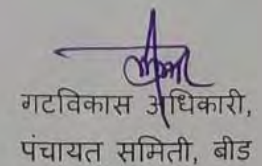 गटविकास अधिकारी,
पंचायत समिती, बीड